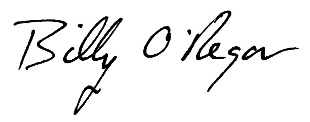 Billy O'Regan